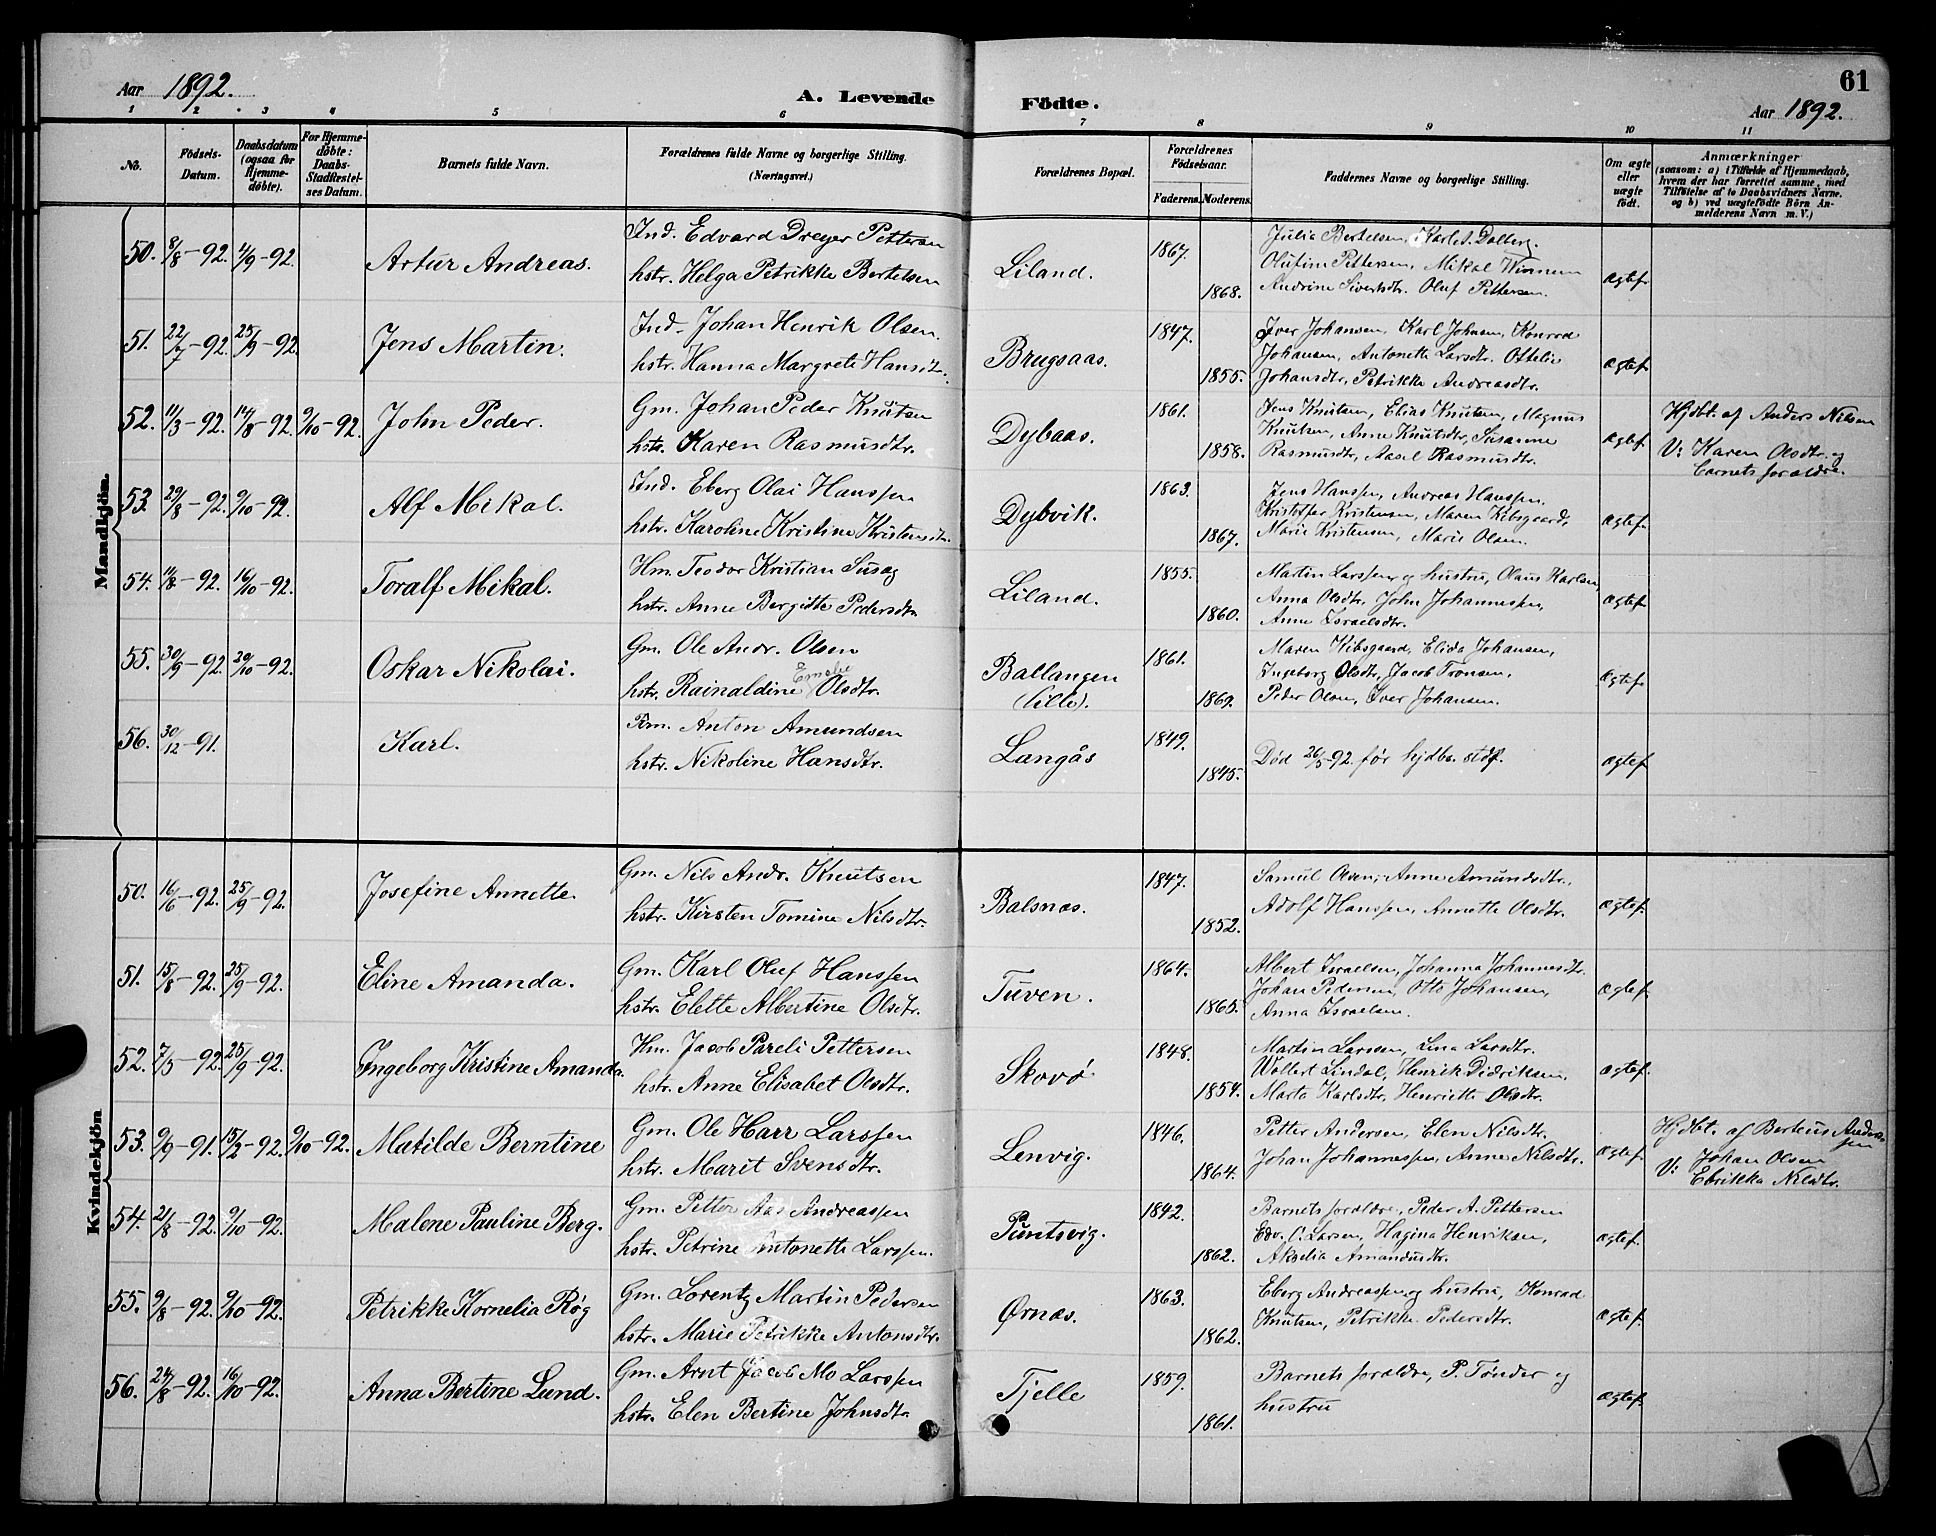 Aar 1892. A. Levende Födte. Aar 1892. 61
1 2 3 4 5 6 7 8 9 10 11
No.
Födsels-Datum.
Daabsdatum (ogsaa for Hjemme-döbte).
For Hjemme-döbte: Daabs-Stadfæstel-ses Datum.
Barnets fulde Navn.
Forældrenes fulde Navne og borgerlige Stilling.
(Næringsvei.)
Forældrenes Bopæl.
Forældrenes Födselsaar.
Faderens. Moderens.
Faddernes Navne og borgerlige Stilling.
Om ægte eller uægte födt.
Anmærkninger
(saasom: a) i Tilfælde af Hjemmedaab,
hvem der har forrettet samme, med
Tilföielse af to Daabsvidners Navne.
og b) ved uægtefödte Börn An-
melderens Navn m. V.)
Mandkjön.
50. 8/8-92. 4/9-92. Artur Andreas. Ind. Edvard Dreyer Pettersen
hstr. Helga Petrikke Bertelsen
Liland. 1867. 1868.
Julia Bertelsen, Karl A. Dalberg.
Olufine Pettersen, Mikal Winnem
Andrine Sivertsdtr. Oluf Pettersen.
ægtef.
51. 22/7-92. 25/9-92. Jens Martin. Ind. Johan Henrik Olsen.
hstr. Hanna Margrete Hansdtr.
Brugsaas. 1847. 1855.
Iver Johansen, Karl Johnsen, Konrad
Johansen, Antonette Larsdtr. Ottelie
Johansdtr, Petrikke Andreasdtr.
ægtef.
52. 11/3-92. 14/8-92. 9/10-92. John Peder. Gm. Johan Peder Knutsen
hstr. Karen Rasmusdtr.
Dybaas. 1861. 1858.
Jens Knutsen, Elias Knutsen, Magnus
Knutsen, Anne Knutsdtr, Susanne
Rasmusdtr, Aasel Rasmusdtr.
ægtef.
Hjdbt. af Anders Nilsen
V: Karen Olsdtr. og
barnets forældre.
53. 29/8-92. 9/10-92. Alf Mikal. Ind. Eberg Olai Hanssen
hstr. Karoline Kristine Kristensdtr.
Dybvik. 1863. 1867.
Jens Hanssen, Andreas Hanssen.
Kristoffer Kristensen, Maren Kibsgaard,
Marie Kristensen, Marie Olsen.
ægtef.
54. 11/8-92. 16/10-92. Toralf Mikal. Hm. Teodor Kristian Susag
hstr. Anne Bergitte Pedersdtr
Liland. 1855. 1860.
Martin Larssen og hustru, Olaus Karlsen,
Anna Olsdtr. John Johannessen,
Anne Israelsdtr.
ægtef.
55. 30/9-92. 20/10-92. Oskar Nikolai. Gm. Ole Andr. Olsen
hstr. Rainaldine Olsdtr.
Ballangen
(lille).
1861. 1869.
Maren Kibsgaard, Elida Johansen,
Ingeborg Olsdtr, Jacob Tronsen,
Peder Olsen, Iver Johansen.
ægtef.
56. 30/12-91. Karl. Anton Amundsen
hstr. Nikoline Hansdtr.
Langås 1849. 1845.
Død 26/5-92. før hjdbs. stdf. ægtef.
Kvindekjön
50. 16/6-92. 25/9-92. Josefine Annette. Gm. Nils Andr. Knutsen
hstr. Kirsten Tomine Nilsdtr.
Balsnes. 1847. 1852.
Samuel Olsen, Anne Amundsdtr.
Adolf Hanssen, Annette Olsdtr.
ægtef.
51. 15/8-92. 25/9-92. Eline Amanda. Gm. Karl Oluf Hanssen
hstr. Elette Albertine Olsdtr.
Tuven. 1864. 1865.
Albert Israelsen, Johanna Johannesdtr.
Johan Pedersen, Otto Johansen,
Anna Israelsen.
ægtef.
52. 7/5-92. 25/9-92. Ingeborg Kristine Amanda. Hm. Jacob Pareli Pettersen
hstr. Anne Elisabet Olsdtr.
Skovø 1848. 1854.
Martin Larssen, Lina Larsdtr.
Wollert Lindal, Henrik Didriksen,
Marta Karlsdtr, Henriette Olsdtr.
ægtef.
53. 9/9-91. 15/2-92. 9/10-92. Matilde Berntine Gm. Ole Harr Larssen
hstr. Marit Svensdtr.
Lenvig. 1846. 1864.
Petter Andersen, Elen Nilsdtr.
Johan Johannessen, Anne Nilsdtr.
ægtef.
Hjdbt. af Berteus Anders-
sen
V: Johan Olsen
Ebrikka Nilsdtr.
54. 21/8-92. 9/10-92. Malene Pauline Berg. Gm. Petter Aas Andreassen
hstr. Petrine Antonette Larssen.
Puntsvig. 1842. 1862.
Barnets forældre, Peder A. Pettersen
Edv. C. Larsen, Hagina Henriksen,
Akselia Amandusdtr.
ægtef.
55. 9/8-92. 9/10-92. Petrikke Kornelia Røg Gm. Lorentz Martin Pedersen
hstr. Marie Petrikke Antonsdtr.
Ørnes. 1863. 1862.
Eberg Andreassen og hustru, Konrad
Knutsen, Petrikke Pedersdtr.
ægtef.
56. 24/8-92. 16/10-92. Anna Bertine Lund. Gm. Arnt Jacob Mo Larssen
hstr. Elen Bertine Johnsdtr
Tjelle 1859. 1861.
Barnets forældre, P. Tønder og
hustru
ægtef.